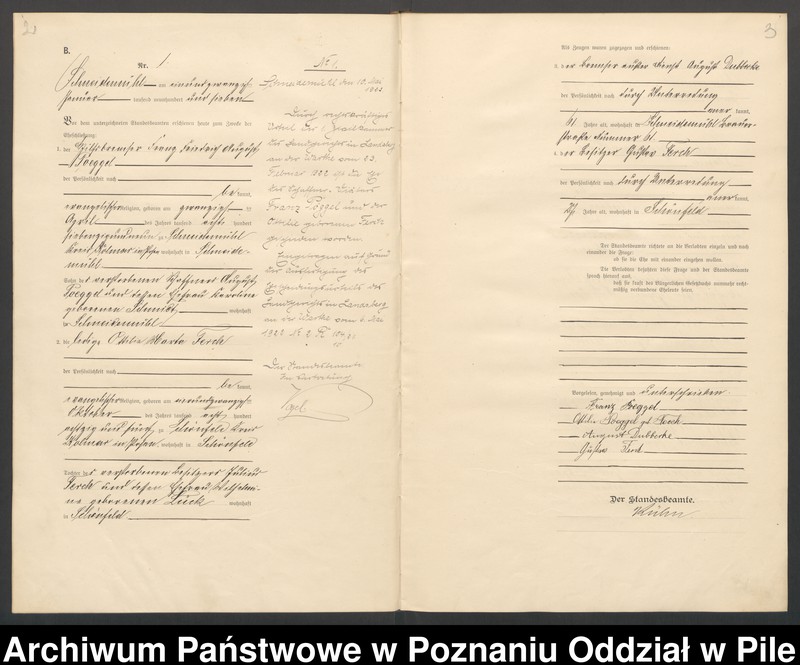 2
B.
Nr. 1
Schneidemühl am einundzwanzigsten
Januar tausend neunhundert und sieben
Vor dem unterzeichneten Standesbeamten erschienen heute zum Zwecke der
Eheschließung:
1. der Hilfsbremser Franz Ludwig August
Poeggel
der Persönlichkeit nach
be kannt,
evangelischer Religion, geboren am zwanzigsten
April des Jahres tausend acht hundert
zu Schneidemühl
Kreis Kolmar in Posen, wohnhaft in Schneide-
mühl
Sohn des verstorbenen Schaffners August
Poeggel und dessen Ehefrau Karoline
geborenen Schmidt wohnhaft
in Schneidemühl
2. die ledige Ottilie Marta Ferch
der Persönlichkeit nach
be kannt,
evangelischer Religion, geboren am neunundzwanzigsten
Oktober des Jahres tausend acht hundert
achtzig und fünf zu Schönfeld Kreis
Kolmar in Posen, wohnhaft in Schönfeld
Tochter des verstorbenen Besitzers Julius
Ferch und dessen Ehefrau Wilhelmi-
ne geborenen Lück wohnhaft
in Schönfeld
No 1.
Schneidemühl den 12. Mai
1922
Durch rechtskräftiges
Urteil der Zivilkammer
des Landgerichts in Landsberg
an der Warthe vom
Februar 1922 ist die Ehe
des
Franz Poeggel und der
Ottilie geborenen Ferch
geschieden worden.
Eingetragen auf Grund
der Ausfertigung des
Ehescheidungsurteils des
Landgerichts in Landsberg
an der Warthe vom 6. Mai
1922
Der Standesbeamte
In Vertretung
3
Als Zeugen waren zugezogen und erschienen:
3. der Bremser außer Dienst August Dubberke
der Persönlichkeit nach durch Unterredung
aner kannt,
61 Jahre alt, wohnhaft in Schneidemühl
straße Nummer 61
4. der Besitzer Gustav Ferch
der Persönlichkeit nach durch Unterredung
aner kannt,
27 Jahre alt, wohnhaft in Schönfeld
Der Standesbeamte richtete an die Verlobten einzeln und nach
einander die Frage:
ob sie die Ehe mit einander eingehen wollen.
Die Verlobten bejahten diese Frage und der Standesbeamte
sprach hierauf aus,
daß sie kraft des Bürgerlichen Gesetzbuchs nunmehr recht-
mäßig verbundene Eheleute seien.
Vorgelesen, genehmigt und unterschrieben
Franz Poeggel
Ottilie Poeggel geb Ferch
August Dubberke
Gustav Ferch
Der Standesbeamte.
Kühn
Archiwum Państwowe w Poznaniu Oddział w Pile